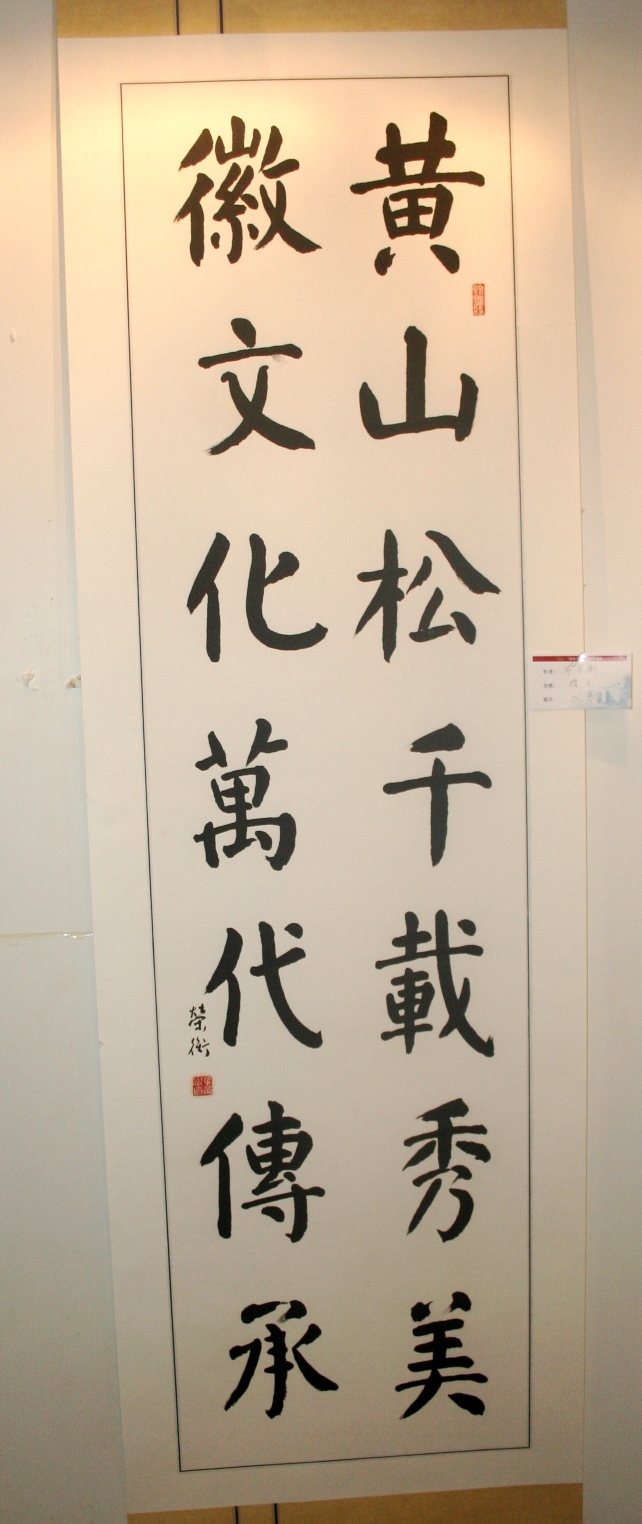 黄山松千載秀美
徽文化萬代傳承
榮衡